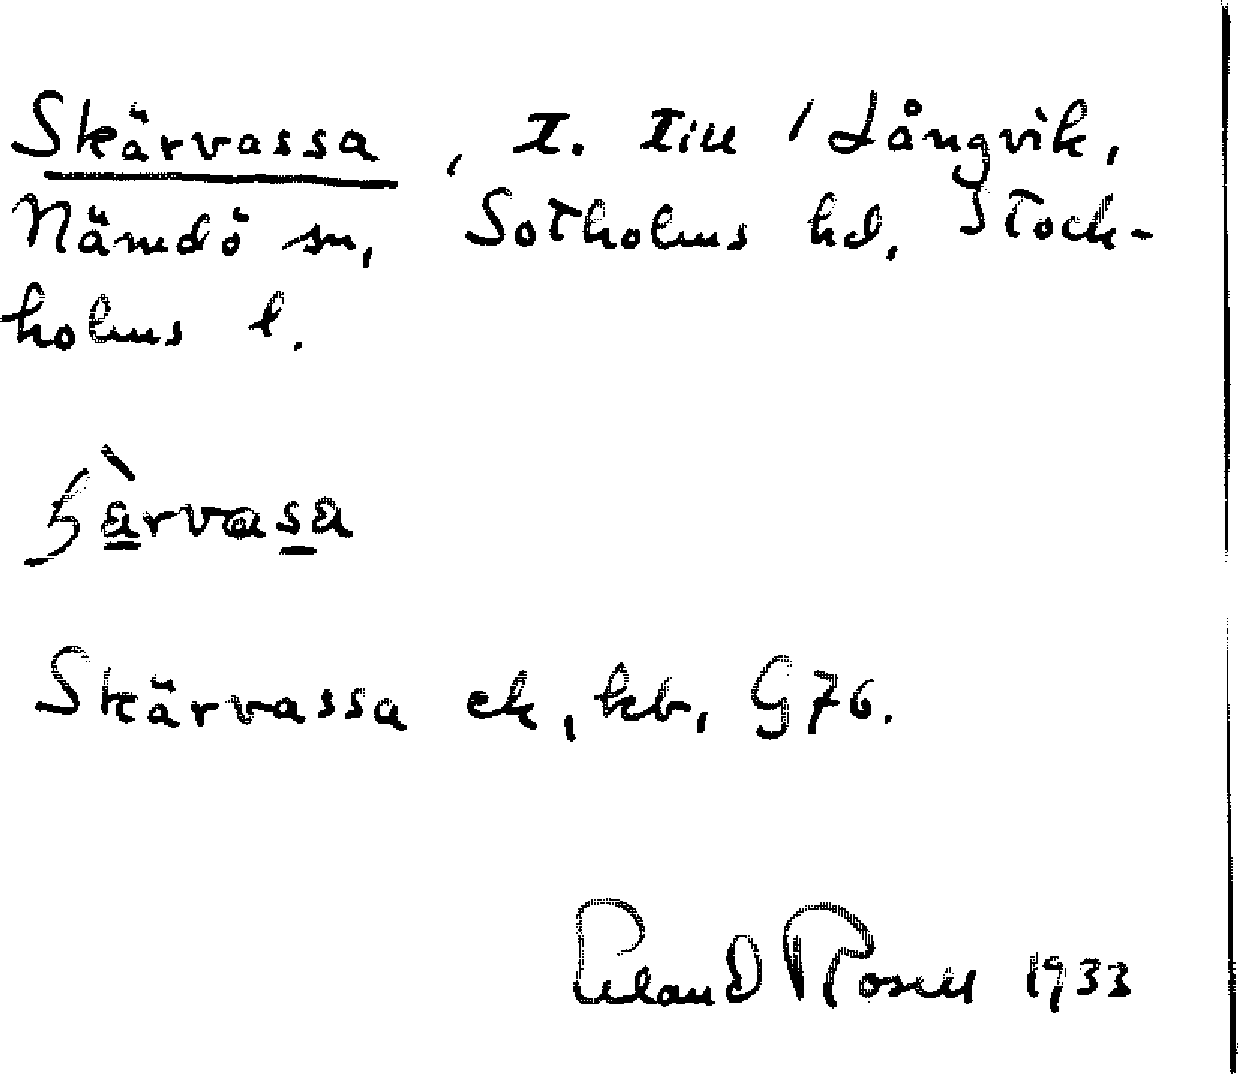 Skärvassa, t. till 1 Långvik,
Nämdö sn, Sotholms hd, Stock-
holms l.
Skärvassa ek, kb, G76.
Erland Rosell 1933